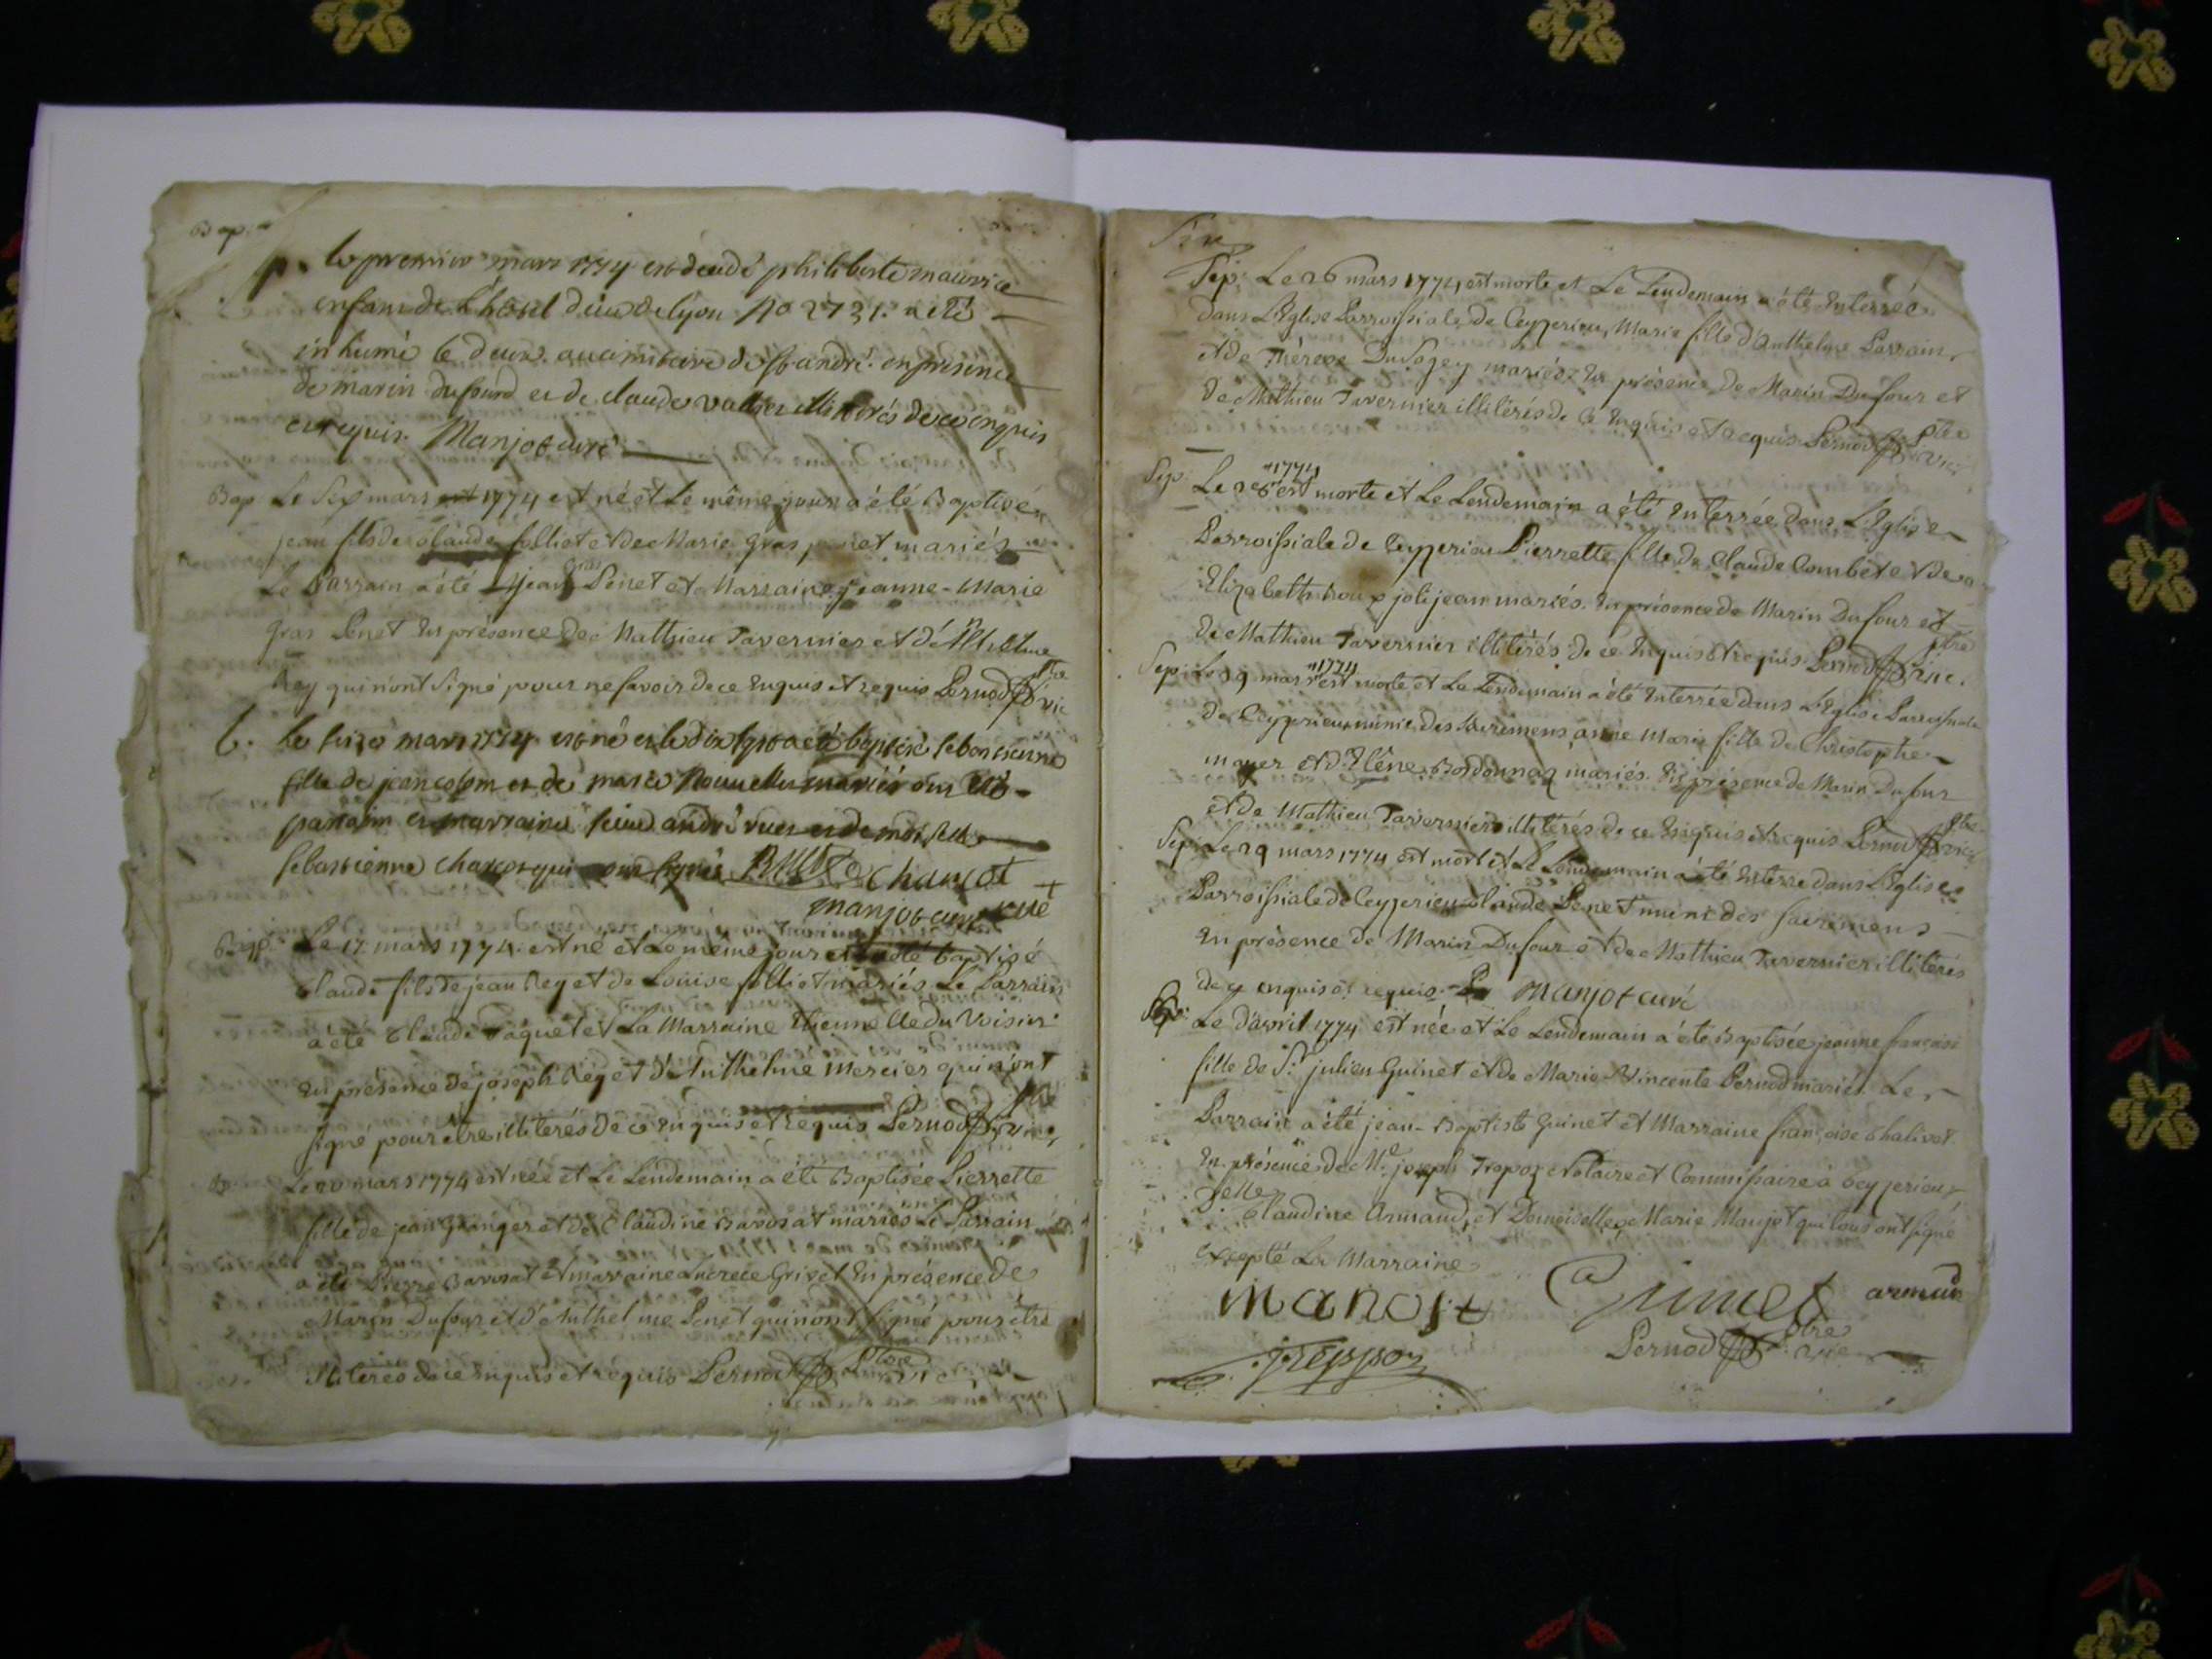 Bap.
p. le premier mars 1774 est decedé philiberte maurice
enfant de L'hotel dieu de lyon No 2731. a eté
inhumé le deux au cimitiere de st andré en presence
de marin dufourd et de claude vallier illiterés de ce enquis
et requis. Manjot curé
Bap Le Sept mars 1774 est né et Le même jour a été Baptisé
jean fils de Claude folliet et de Marie Gras penet mariés
Le Parrain a été jean Gras Penet et Marraine jeanne-Marie
Gras Penet En présence de Matthieu Tavernier et d'Anthelme
Rey qui n'ont Signé pour ne savoir de ce Enquis et requis Pernod ptre vic
b. Le seize mars 1774 est né et le dix sept a été baptisé sebastienne
fille de jean colom et de marie mariés ont été
parrain et marraine sieur andré ruet et demoiselle
sebastienne charcot qui ont signés Ruet Charcot
manjot curé rue
Bap. Le 17 mars 1774 est né et le même jour a été baptisé
Claude fils de jean Rey et de Louise folliet mariés Le Parrain
a été Claude Paquet et La Marraine Etiennette du Voisin
En présence de joseph Rey et d'Anthelme Mercier qui n'ont
signé pour être illiterés de ce Enquis et Requis Pernod ptre vic
B. Le 20 mars 1774 est née et Le Lendemain a été Baptisée Pierrette
fille de jean Granger et de Claudine Bavosat mariés Le Parrain
a été Pierre Bavosat et marraine Lucrece Grivet En présence de
Marin Dufour et d'Anthelme Penet qui n'ont Signé pour être
illiteres de ce Enquis et requis Pernod Ptre vic
Six
Sep. Le 26 mars 1774 est morte et Le Lendemain a été Enterrée
dans L'Eglise Parroissiale de Ceyzerieu, Marie fille d'Anthelme Parrain
et de Thérese Du Sogey mariés En présence de Marin Dufour et
de Mathieu Tavernier illiterés de ce Enquis et requis Pernod Ptre vic
Sep. Le 26 1774 est morte et Le Lendemain a été Enterrée dans L'Eglise
Parroissiale de Ceyzerieu Pierrette fille de Claude Combet et de
Elizabeth Roux joli jean mariés. En présence de Marin Dufour et
de Mathieu Tavernier illiterés de ce Enquis et requis Pernod ptre vic.
Sep. Le 29 mars 1774 est morte et Le Lendemain a été Enterrée dans L'Eglise Parroissiale
de Ceyzerieu munie des sacremens, anne Marie fille de Christophe
mayer et d'Elêne Bordonnaz mariés. En présence de Marin Dufour
et de Mathieu Tavernier illiterés de ce Enquis et requis Pernod ptre vic
Sep. Le 29 mars 1774 est mort et Le Lendemain a été Enterré dans L'Eglise
Parroissiale de Ceyzerieu Claude Penet muni des sacremens
En présence de Marin Dufour et de Mathieu Tavernier illiterés
de ce enquis et requis. Manjot curé
Le d'avril 1774 est née et Le Lendemain a été Baptisée jeanne françoise
fille de Sr julien Guinet et de Marie-Vincente Pernod mariés. Le
Parrain a été jean-Baptiste Guinet et Marraine françoise Chalivet
En présence de Me joseph Trepoz Notaire et Commissaire à Ceyzerieu,
Delle Claudine Armand, et Demoiselle Marie Manjot qui tous ont signé
excepté La Marraine
manojt Guinet armand
J Treppoz Pernod ptre vic